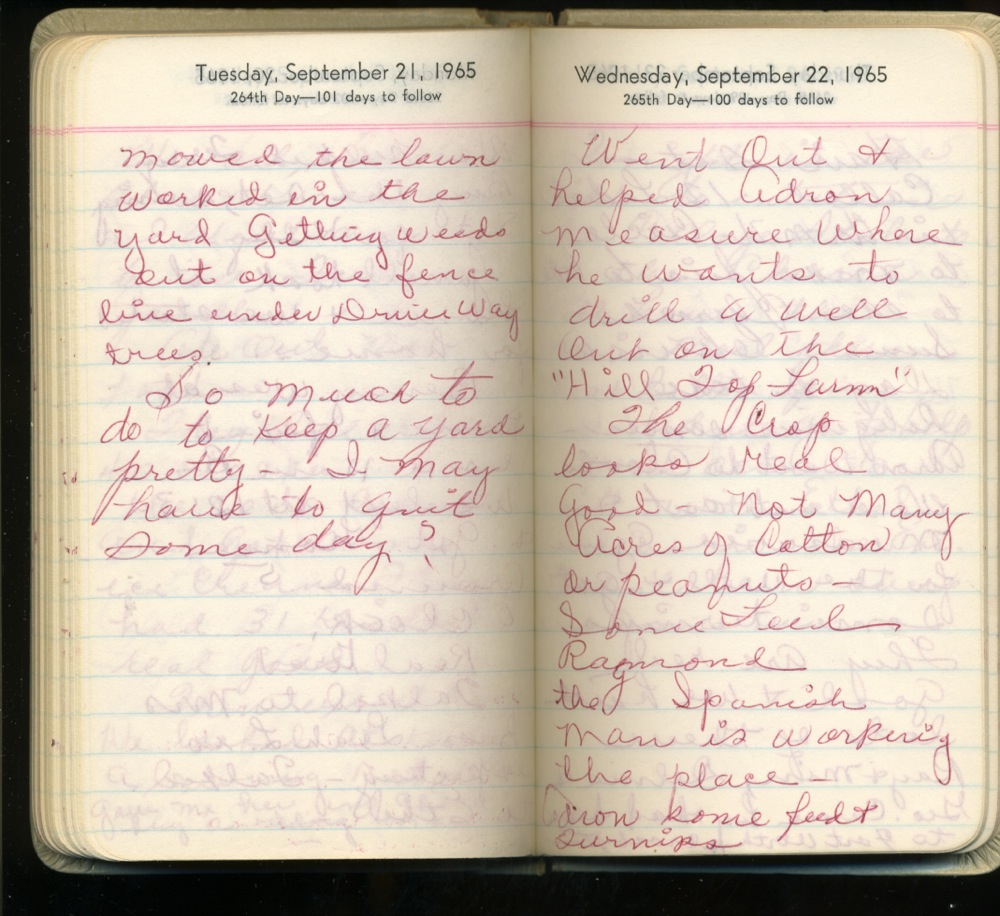 Tuesday, September 21, 1965
264th Day—101 days to follow
Mowed the lawn
worked in the
yard Getting weeds
cut on the fence
line under Drive Way
trees.
So Much to
do to Keep a yard
pretty - I may
have to quit
some day?
Wednesday, September 22, 1965
265th Day—100 days to follow
Went Out &
helped Adron
Measure Where
he wants to
drill a well
Out on the
"Hill Top Farm"
The Crop
looks real
Good - Not Many
Acres of Cotton
or peanuts -
Some Feed
Raymond
the Spanish
Man is working
the place -
Adron some feed &
turnips